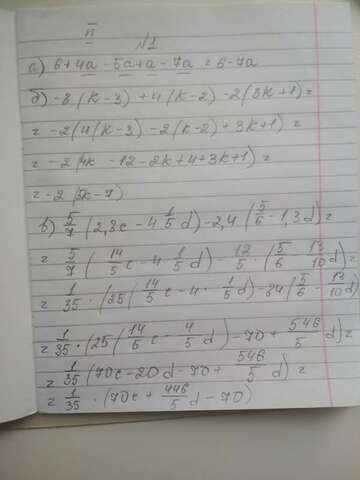 п
№1
а) 6+4а-5а+а-7а=6-7а
б) -8(к-3)+4(к-2)-2(3к+1)=
= -2(4(к-3)-2(к-2)+3к+1)=
= -2(4к-12-2к+4+3к+1)=
= -2(5к-7)
в) 5/7(2,8с-4 1/5d)-2,4(5/6-1,3d)=
= 5/7(14/5с-4 1/5d)-12/5·(5/6-13/10d)=
= 1/35·(25(14/5с-4·1/5d)-84(5/6-13/10d)
= 1/35·(25(14/5с-4/5d)-70+546/5d)=
= 1/35(70с-20d-70+546/5d)=
= 1/35·(70с+446/5d-70)